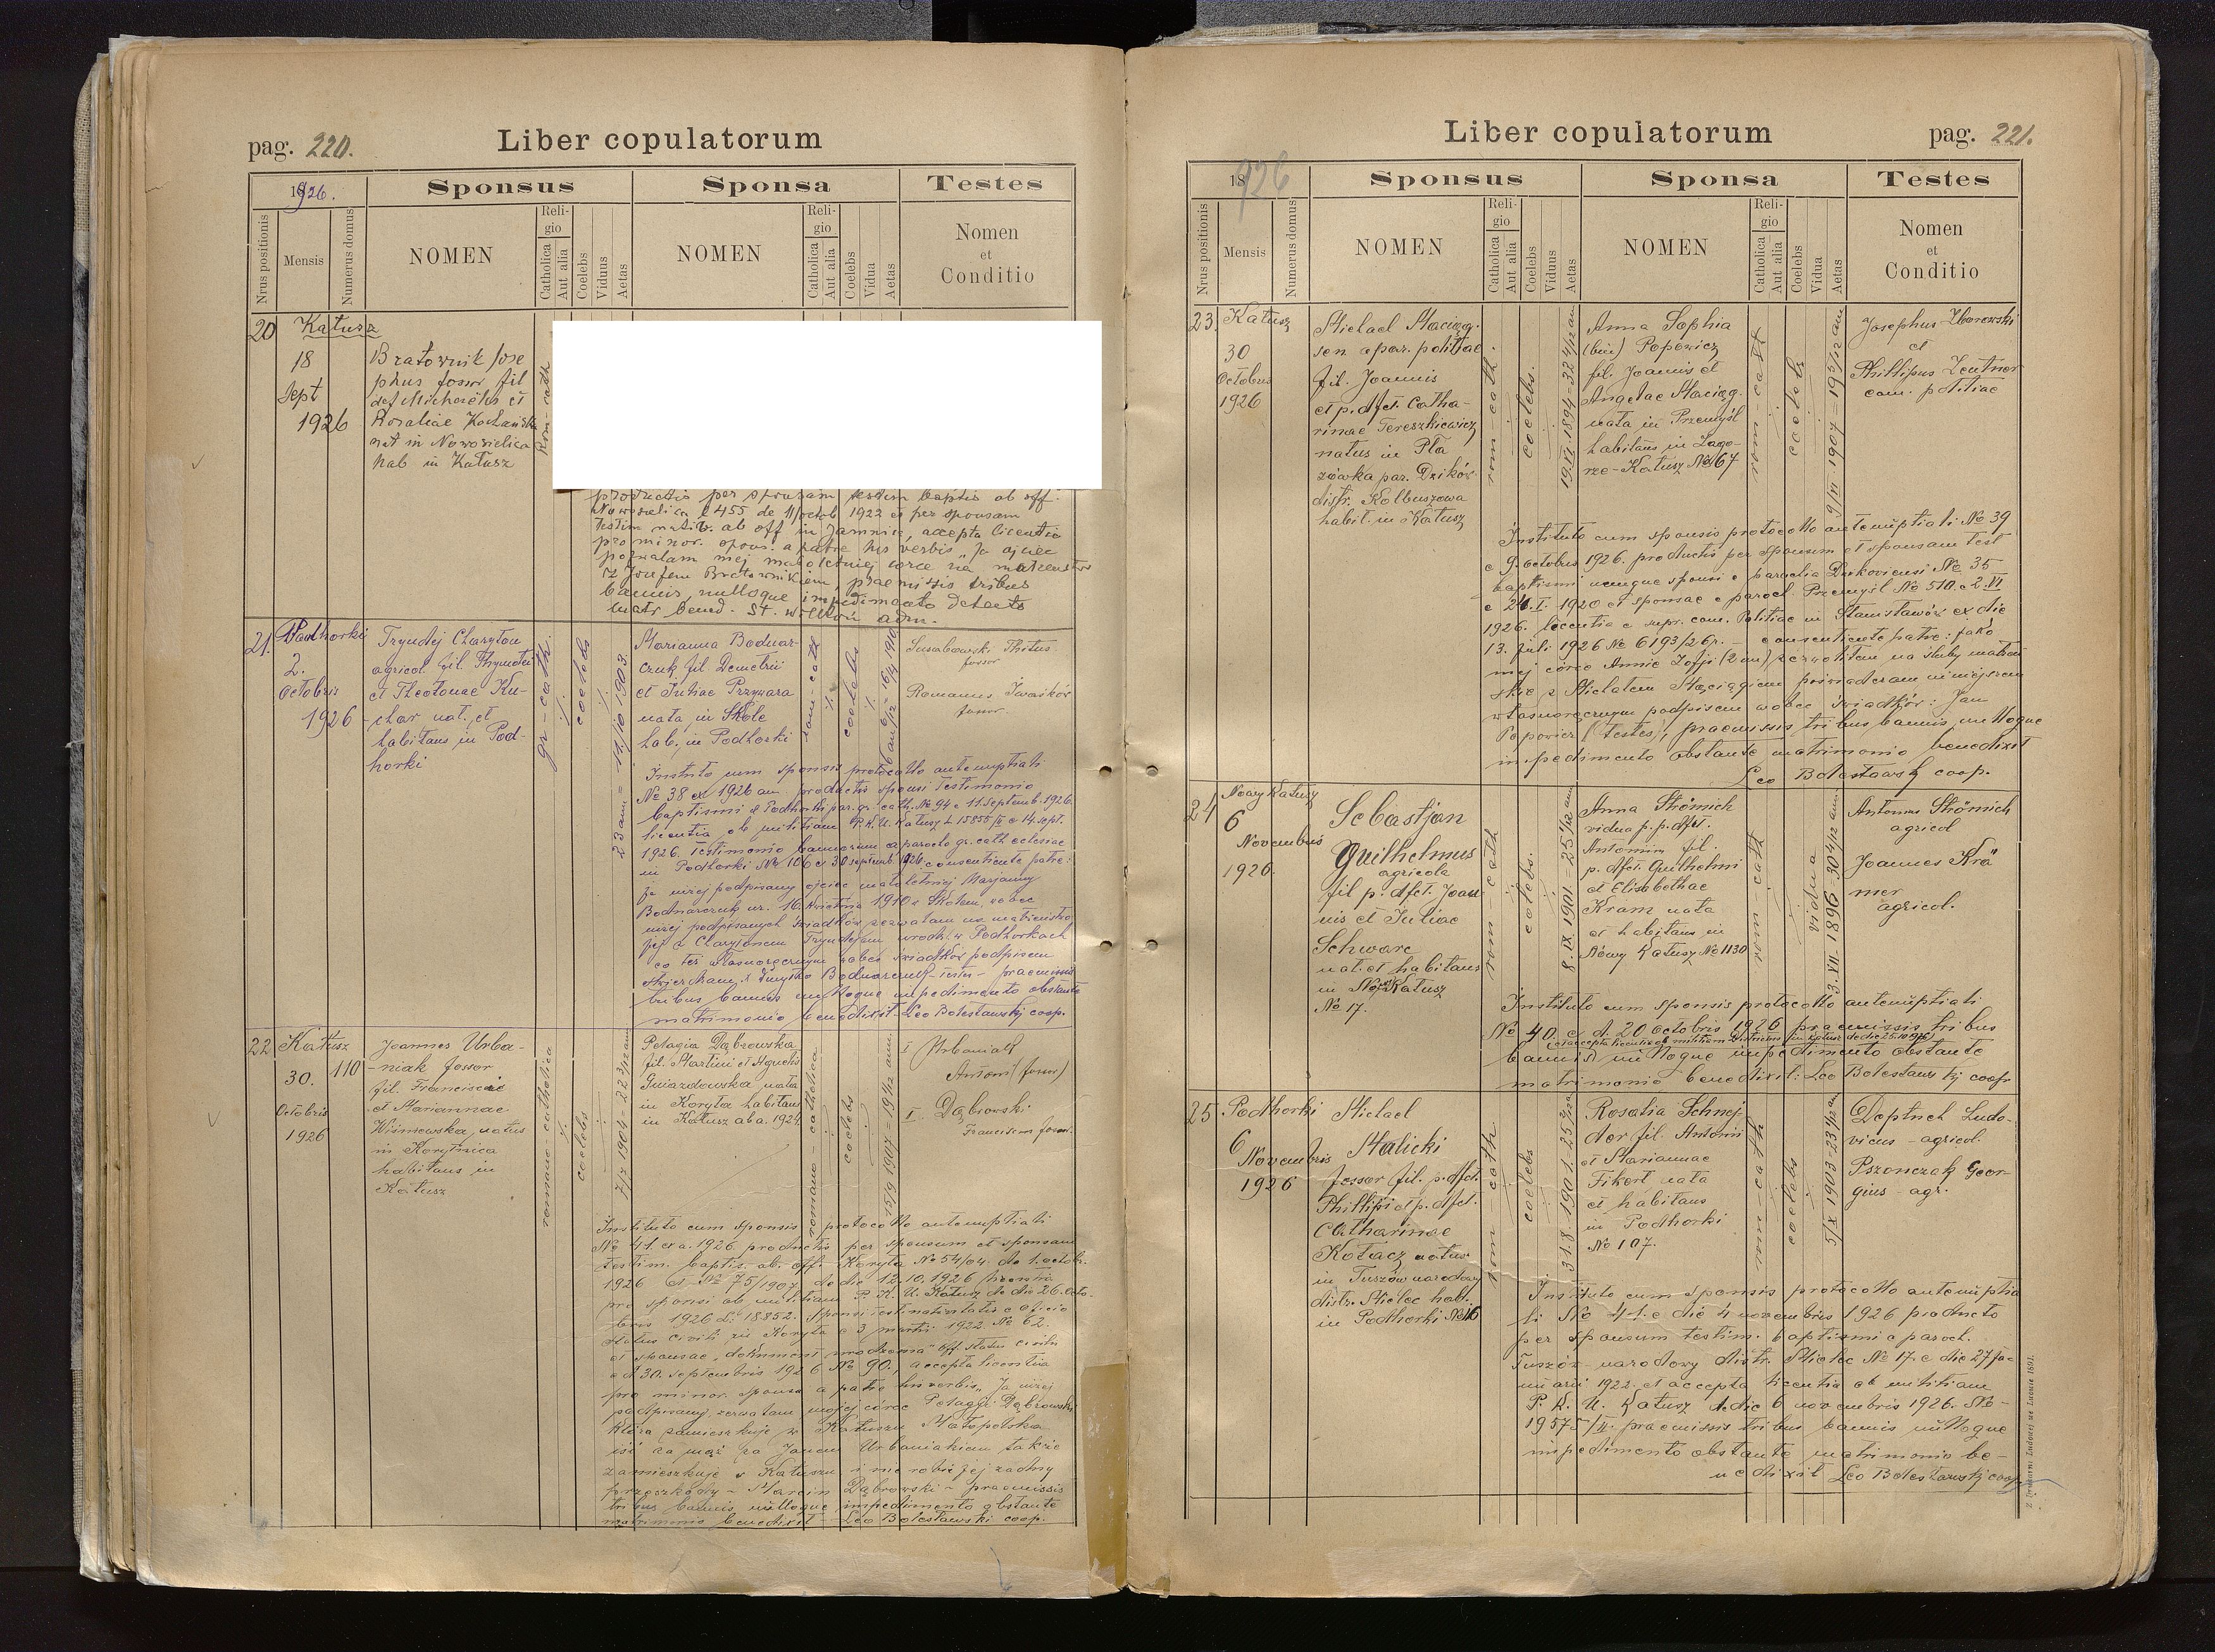 pag. 220.
Liber copulatorum
1926.
Sponsus
Sponsa
Testes
Nrus positionis
Mensis
Numerus domus
NOMEN
Religio
Catholica
Aut alia
Coelebs
Viduus
Aetas
NOMEN
Religio
Catholica
Aut alia
Coelebs
Vidua
Aetas
Nomen
et
Conditio
20
Kałusz
18
Sept
1926
Bratownik Jose
phus fossor fil
des Michaelis et
Rosaliae Kochańska
nat in Nowosielica
hab in Kałusz
Rom-cath
productis per sponsam testim baptis ab off.
Nowosielica L 455 de 11/octob 1922 et per sponsam
testim nativ. ab off in Jamnica, accepta licentia
pro minor. spons. a patre his verbis „Ja ojciec
pozwalam mej małoletniej córce na małżeństwo
z Józefem Bratownikiem, praemissis tribus
bannis, nulloque impedimento detecto
matr bened. St. adm.
21.
Podhorki
2.
Octobris
1926
Tryndej Charyton
agricol. fil.
et Theodonae Ku-
char nat. et
habitans in Pod-
horki
gr-cath.
coelebs
23 ann = 11/10 1903.
Marianna Bodnar
czuk fil Demetrii
et Juliae Przywara
nata in Skole
hab. in Podhorki
rom-cath
coelebs
fossor
Romanus Iwaśków
fossor
Instituto cum sponsis protocollo antenuptiali
No 38 ex 1926 an. productis sponsi Testimonio
baptismi e Podhorki par. gr. cath. No 94 e 11. Septemb. 1926.
licentia ob militiam P.K.U. Kałusz L 15855/II e 14. sept.
1926. Testimonio bannorum a parocho gr. cath eclesiae
in Podhorki No 106 e 30 septemb 1926. consentiente patre:
Ja niżej podpisany ojciec małoletniej Marjanny
Bodnarczuk ur. 16. kwietnia 1910 w Skolem, wobec
niżej podpisanych świadków zezwalam na małżeństwo
jej z Charytonem Tryndejem urodz. w Podhorkach
co też własnoręcznym wobec świadków podpisem
stwierdzam: Dmytro Bodnarczuk - testes - praemissis
tribus bannis nulloque impedimento obstante
matrimonio benedixit - Leo Bolesławskj coop.
22
Kałusz
110
30.
Octobris
1926
Joannes Urba-
niak fossor
fil. Franciscae
et Mariannae
Wiśniewska, natus
in Korytnica
habitans in
Kałusz
romano-catholica
coelebs
7/7 1904 - 22 3/12 ann
Pelagia Dąbrowska
fil. Martini et Agnetis
Gwiazdowska, nata
in Koryta habitans
in Kałusz ab a. 1924
romano-catholica
coelebs
15/9 1907 = 19 1/12 ann.
I Urbaniak
Antoni (fossor)
I. Dąbrowski
Franciscus fossor.
Instituto cum sponsis protocollo antenuptiali
No 41. ex a. 1926 productis per sponsum et sponsam
testim. baptis. ab. off. Koryta No 54/04. de 1. octobr.
1926 et No 75/1907 de die 12.10.1926
pro sponsi ob militiam P.K.U. Kałusz de die 26. octo-
bris 1926 L: 18852. Sponsi test. nativitatis e oficio
status civilis Koryta e 3 martii 1922. No 62.
et sponsae „dokument urodzenia" off. status civilis
e d 30. septembris 1926 No 90., accepta licentia
pro minor. sponsa a patre his verbis „Ja niżej
podpisany, zezwalam mojej córce Pelagji Dąbrowskiej
która zamieszkuje w Kałuszu Małopolska
iść za mąż za Janem Urbaniakiem także
zamieszkuje w Kałuszu i nie robię jej żadnej
przeszkody - Marcin Dąbrowski - praemissis
tribus bannis nulloque impedimento obstante
matrimonio benedixit - Leo Bolesławski coop.
Liber copulatorum
pag. 221.
1926
Sponsus
Sponsa
Testes
Nrus positionis
Mensis
Numerus domus
NOMEN
Religio
Catholica
Aut alia
Coelebs
Viduus
Aetas
NOMEN
Religio
Catholica
Aut alia
Coelebs
Vidua
Aetas
Nomen
et
Conditio
23.
Kałusz
30
Octobris
1926
Michael Maciąg.
sen a par. politiae
fil. Joannis
et p. dfct. Catha-
rinae Tereszkiewicz
natus in Pła
zówka par. Dzików
distr. Kolbuszowa
habit. in Kałusz
rom-cath.
coelebs.
19.VI.1894=32 4/12 an
Anna Sophia
(bin) Popowicz
fil. Joannis et
Angelae Maciąg.
nata in Przemyśl
habitans in Zago-
rze-Kałusz No 67
rom-cath
coelebs
9/VI 1907=19 5/12 ann
Josephus Zborowski
et
Phillipus Zentner
com. politiae
Instituto cum sponsis protocollo antenuptiali No 39
e 9. octobris 1926. productis per sponsum et sponsam test
baptismi nempe sponsi e parochia Dzikoviensi No 35
e 24.I.1920 et sponsae e paroch. Przemyśl No 510. e 2.VI
1926. licentia e supr. com. Politiae in Stanisławów ex die
13. Juli 1926 No 6193/26 r. - consentiente patre: jako
mej córce Annie Zofji (2 im) zezwoliłem na śluby małżeń
skie z Michałem Maciągiem poświadczam niniejszem
własnoręcznym podpisem wobec świadków: Jan
Popowicz (testes), praemissis tribus bannis nulloque
impedimento obstante matrimonio benedixit
Leo Bolesławskj coop.
24
Nowy Kałusz
6
Novembris
1926.
Sebastjan
Guilhelmus
agricola
fil p. dfct. Joan-
nis et Juliae
Schwarc
nat. et habitans
in Nowy Kałusz
No 17.
rom cath
coelebs.
8.IX 1901=25 1/12 an
Anna Strömich
vidua p. p. dfct.
Antonim fil.
p. dfct. Guilhelmi
et Elisabethae
Kram nata
et habitans in
Nowy Kałusz No 1130
rom-cath
vidua
3.XII.1896 30 4/12 an.
Antonius Strömich
agricol
Joannes Krä
mer
agricol.
Instituto cum sponsis protocollo antenuptiali
No 40. e d. 20 octobris 1926 praemissis tribus
bannis nulloque impedimento obstante
matrimonio benedixit: Leo Bolesławskj coop
25.
Podhorki
6
Novembris
1926
Michael
Malicki
fossor fil. p. dfct.
Phillipi et p. dfct.
Catharinae
Kołacz natus
in Tuszów narodowy
distr. Mielec habi.
in Podhorki No 16
rom-cath
coelebs
31.8.1901.-25
Rosalia Schnej
der fil. Antonii
et Mariannae
Fikert nata
et habitans
in Podhorki
No 107.
rom-cath
coelebs
5/X 1903-23 1/12 an
Deptuch Ludo-
vicus - agricol.
Pszonczak Geor-
gius - agr.
Instituto cum sponsis protocollo antenuptia
li No 41. e die 4 novembris 1926 producto
per sponsum testim. baptismi a paroch.
Tuszów narodowy distr. Mielec No 17. e die 27 Ja-
nuarii 1922. et accepta licentia ob militiam
P.K.U. Kałusz de die 6 novembris 1926. No-
19575/II. praemissis tribus bannis nulloque
impedimento obstante matrimonio be-
nedixit Leo Bolesławskj coop